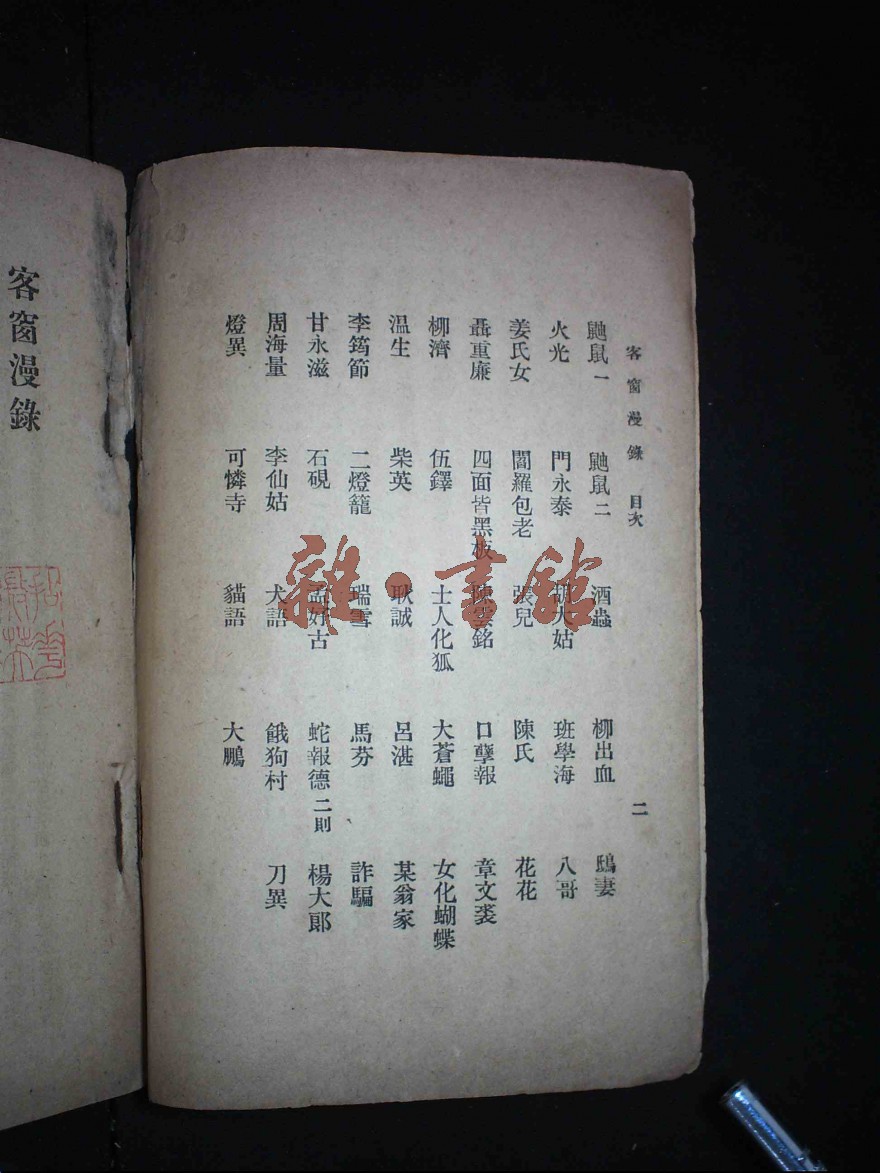 客窗漫錄 目次 二
鼬鼠一 鼬鼠二 酒蟲 柳出血 鴟妻
火光 門永泰 大姑 班學海 八哥
姜氏女 閻羅包老 張兒 陳氏 花花
聶重廉 四面皆黑板 銘 口孽報 章文裘
柳濟 伍鐸 士人化狐 大蒼蠅 女化蝴蝶
溫生 柴英 耿誠 呂湛 某翁家
李筠節 二燈籠 瑞雪 馬芬 詐騙
甘永滋 石硯 孟好古 蛇報德二則 楊大郎
周海量 李仙姑 犬語 餓狗村 刀異
燈異 可憐寺 貓語 大鵬
客窗漫錄
雜·書館